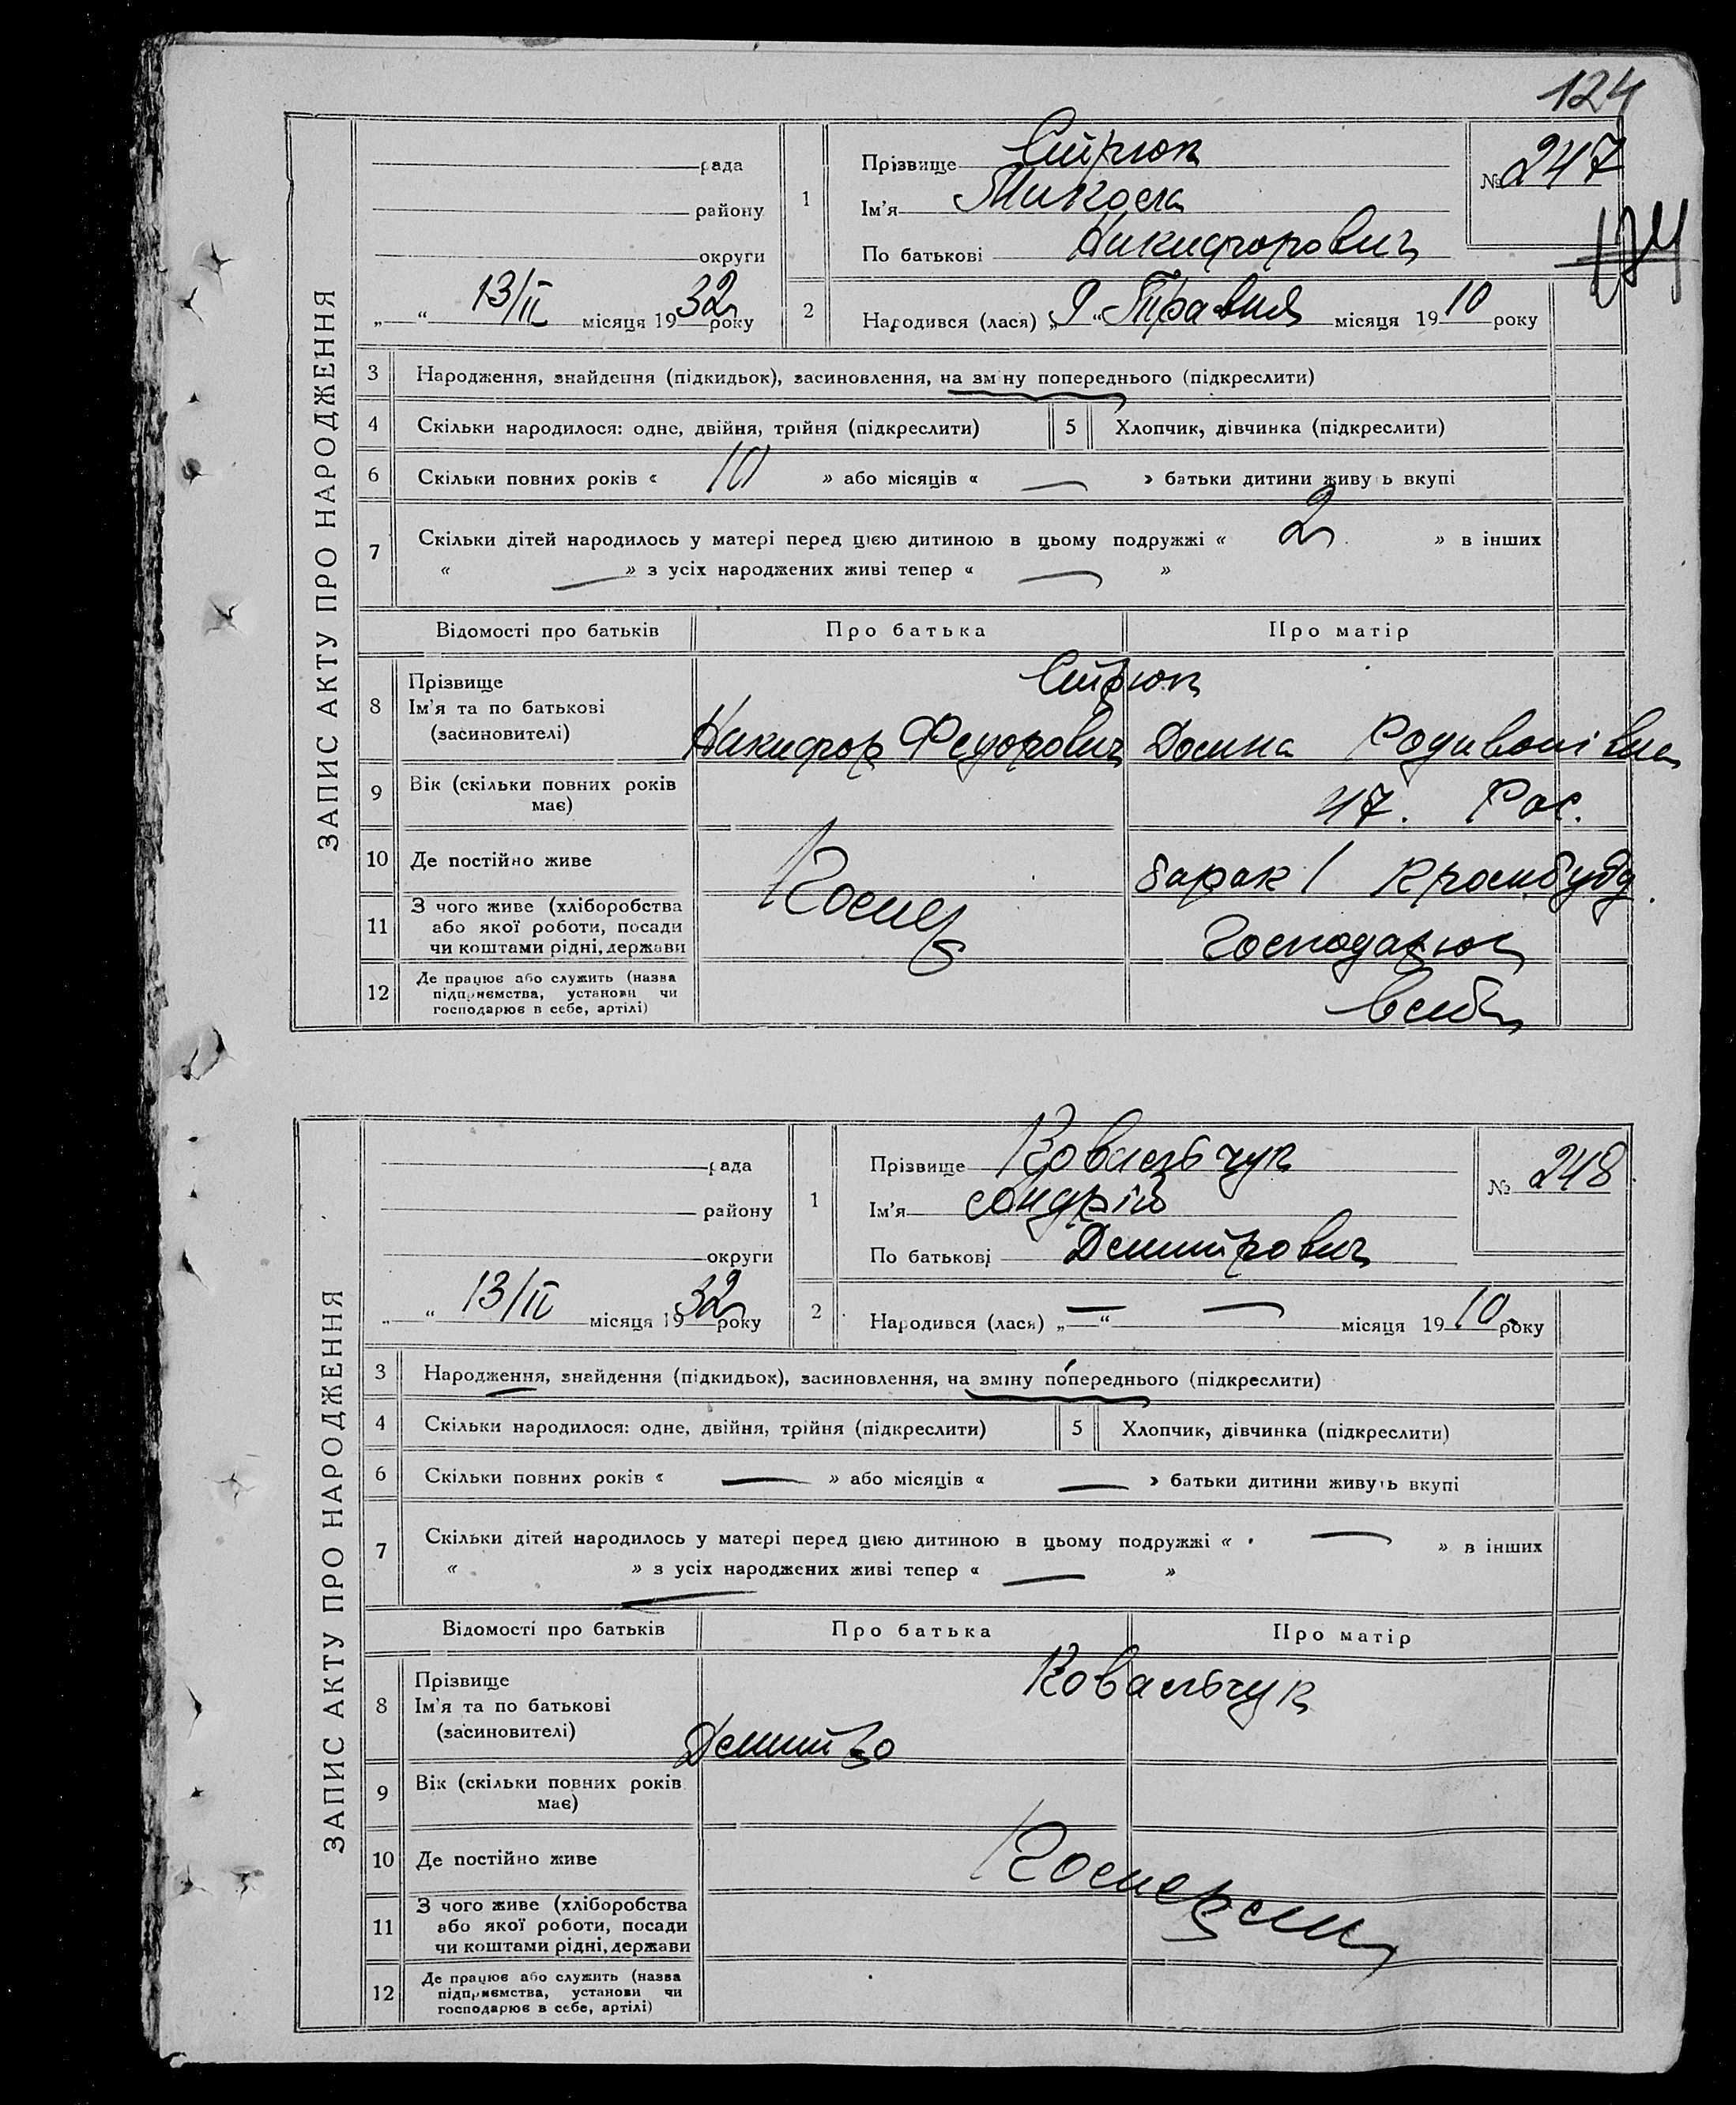 124
ЗАПИС АКТУ ПРО НАРОДЖЕННЯ
рада
району
округи
„ “ 13/II місяця 1932 року
1
Прізвище Стрюк
Ім'я Микола
По батькові Никифорович
№ 247
124
2
Народився (лася) „9“ Травня місяця 1910 року
3 Народження, знайдення (підкидьок), засиновлення, на зміну попереднього (підкреслити)
4 Скільки народилося: одне, двійня, трійня (підкреслити) 5 Хлопчик, дівчинка (підкреслити)
6 Скільки повних років « 10 » або місяців « — » батьки дитини живуть вкупі
7 Скільки дітей народилось у матері перед цією дитиною в цьому подружжі « 2 » в інших
« — » з усіх народжених живі тепер « — »
Відомості про батьків Про батька Про матір
8 Прізвище
Ім'я та по батькові
(засиновителі)
Стрюк
Никифор Федорович Домна Родивонівна
9 Вік (скільки повних років має)
47. Рос.
10 Де постійно живе
Помер
барак 1
11 З чого живе (хліборобства
або якої роботи, посади
чи коштами рідні, держави
Господарює
12 Де працює або служить (назва
підприємства, установи чи
господарює в себе, артілі)
ЗАПИС АКТУ ПРО НАРОДЖЕННЯ
рада
району
округи
„ “ 13/II місяця 1932 року
1
Прізвище Ковальчук
Ім'я Андрій
По батькові Демитрович
№ 248
2
Народився (лася) „—“ — місяця 1910 року
3 Народження, знайдення (підкидьок), засиновлення, на зміну попереднього (підкреслити)
4 Скільки народилося: одне, двійня, трійня (підкреслити) 5 Хлопчик, дівчинка (підкреслити)
6 Скільки повних років « — » або місяців « — » батьки дитини живуть вкупі
7 Скільки дітей народилось у матері перед цією дитиною в цьому подружжі « — » в інших
« — » з усіх народжених живі тепер « — »
Відомості про батьків Про батька Про матір
8 Прізвище
Ім'я та по батькові
(засиновителі)
Ковальчук
Демитро
9 Вік (скільки повних років має)
10 Де постійно живе
Померли
11 З чого живе (хліборобства
або якої роботи, посади
чи коштами рідні, держави
12 Де працює або служить (назва
підприємства, установи чи
господарює в себе, артілі)